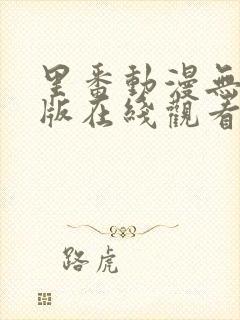 里番動漫無
版在綫觀看
路虎